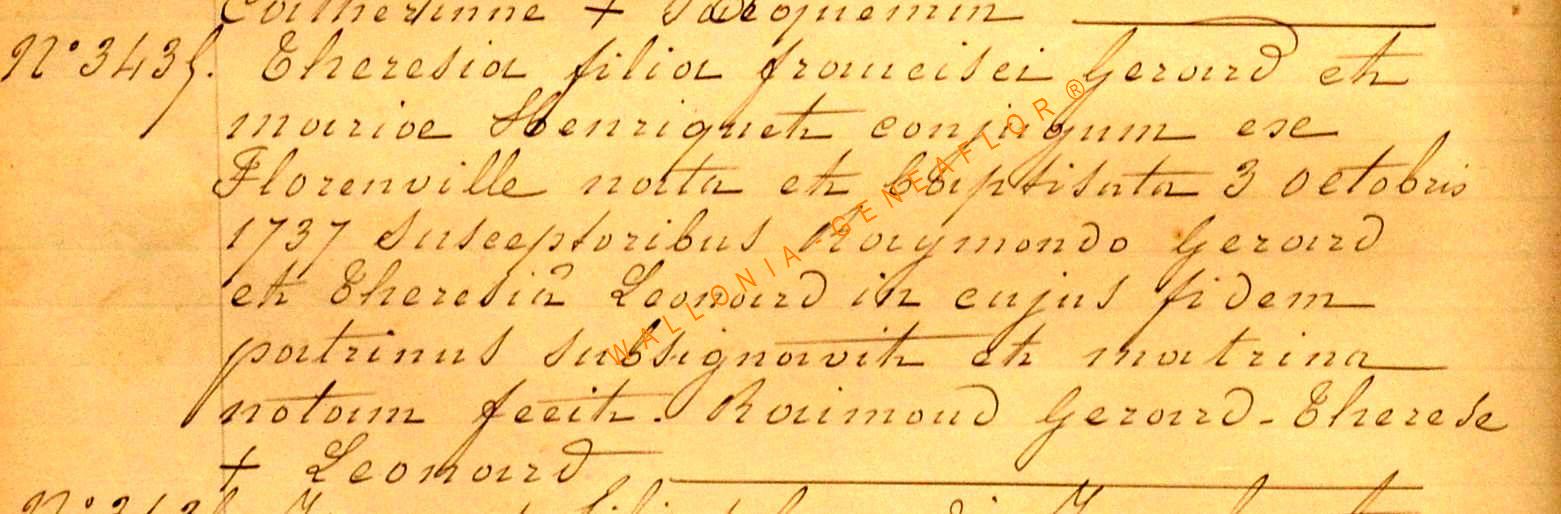 Catherinne + Jacquemin
N° 3435. Theresia filia francisci Gerard et
mariae Henriquet conjugum ex
Florenville nata et baptisata 3 octobris
1737 Susceptoribus Raymondo Gerard
et Theresiâ Leonard in cujus fidem
patrinus subsignavit et matrina
notam fecit. Raimond Gerard - Therese
+ Leonard
WALLONIA-GENEAFLOR ®